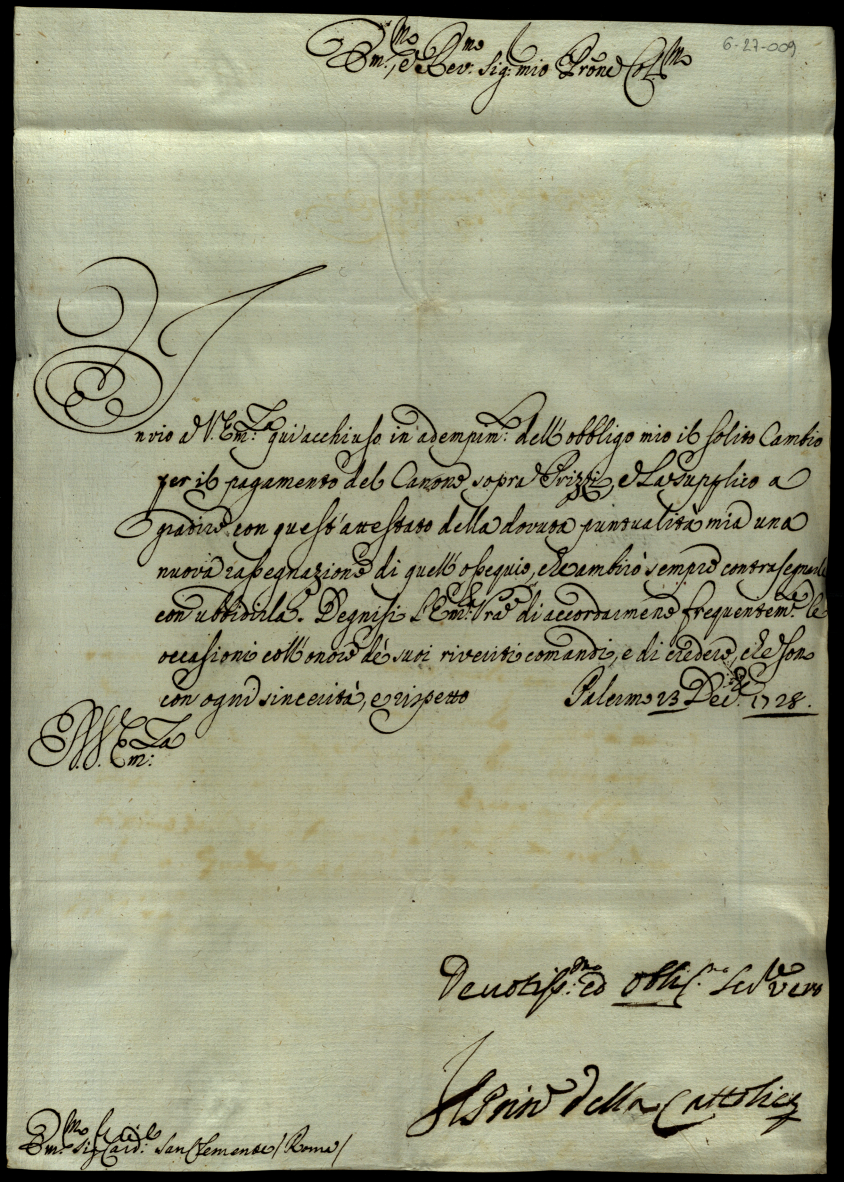 6-27-009
Em.mo, e Rev.mo Sig.r mio P̃rone Col.mo
Invio a V. Em.za qui acchiuso in adempim.to dell'obbligo mio il solito Cambio
per il pagamento del Canone sopra Prizzi, e La supplico a
gradire con quest'attestato della dovuta puntualità mia una
nuova rassegnazione di quell'ossequio, che ambirò sempre contrasegnarle
con ubbidirla. Degnisi l'Em.za Vra di accordarmene frequentem.te le
occasioni coll'onore de' suoi riveriti comandi, e di credere, che son
con ogni sincerità, e rispetto Palermo 23 Dec.bre 1728.
V. Em.za
Devotiss.mo ed obblig.mo Ser.re vero
Il Prin.e della Cattolica
Em.mo Sig.r Card.l San Clemente / Roma /